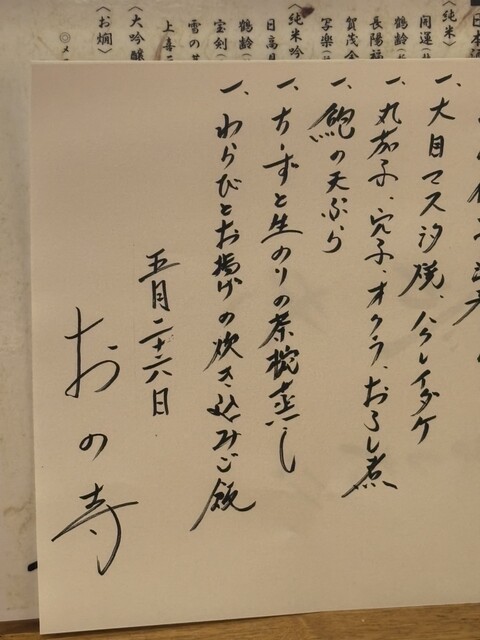 一、大目マス汐焼、ハクレイダケ
一、丸茄子、穴子、オクラ、おろし煮
一、鮑の天ぷら
一、ちーずと生のりの茶椀蒸し
一、わらびとお揚げの炊き込みご飯
五月二十六日
おの寺
日本酒
〈純米〉
開運
鶴齢
長陽福
賀茂金
写楽
〈純米吟
日高見
鶴齢
宝剣
雪の
上喜
〈大吟醸
〈お燗〉